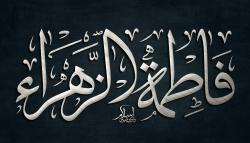 فَاطِمَةُ الزَّهرَاء